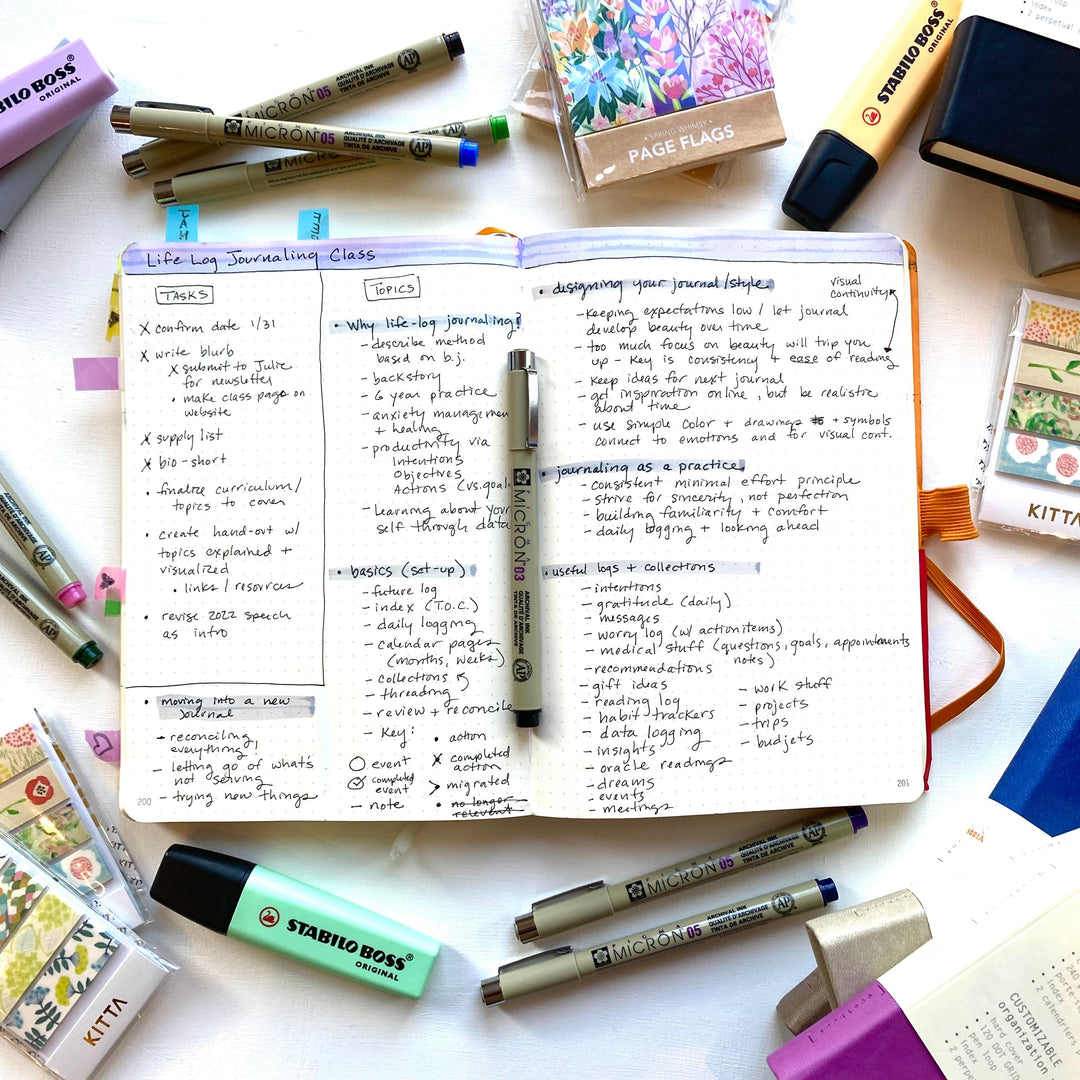 STABILO BOSS
ORIGINAL
MICRON 05
ARCHIVAL INK
QUALITÉ D'ARCHIVAGE
TINTA DE ARCHIVO
AP
MICRON 05
ARCHIVAL INK
QUALITÉ D'ARCHIVAGE
TINTA DE ARCHIVE
AP
MICRON
SPRING WHIMSY
PAGE FLAGS
STABILO BOSS
ORIGINAL
index
2 perpetual
Life Log Journaling Class
TASKS
X confirm date 1/31
X write blurb
X submit to Julie
for newsletter
• make class page on
website
X supply list
X bio - short
• finalize curriculum /
topics to cover
• create hand-out w/
topics explained +
visualized
• links / resources
• revise 2022 speech
as intro
• moving into a new
journal
- reconciling
everything!
- letting go of what's
not serving
- trying new things
200
TOPICS
• Why life-log journaling?
- describe method
based on b.j.
- backstory
- 6 year practice
- anxiety managemen
+ healing
- productivity via
Intentions
Objectives
Actions (vs. goal
- learning about your
self through data
• basics (set-up)
- future log
- index (T.O.C.)
- daily logging
- calendar pages
(months, weeks)
- collections
- threading
- review + reconcile
- Key:
• action
○ event
X completed
action
completed
event
> migrated
- note
• no longer
relevant
• designing your journal/style
visual
continuity
- keeping expectations low / let journal
develop beauty over time
- too much focus on beauty will trip you
up - key is consistency + ease of reading
- keep ideas for next journal
- get inspiration online, but be realistic
about time
- use simple color + drawings + symbols
connect to emotions and for visual cont.
• journaling as a practice
- consistent minimal effort principle
- strive for sincerity, not perfection
- building familiarity + comfort
- daily logging + looking ahead
• useful logs + collections
- intentions
- gratitude (daily)
- messages
- worry log (w/ action items)
- medical stuff (questions, goals, appointments
notes)
- recommendations
- gift ideas
- reading log
- habit trackers
- data logging
- insights
- oracle readings
- dreams
- events
- meetings
- work stuff
- projects
- trips
- budgets
201
MICRON 03
ARCHIVAL INK
QUALITÉ D'ARCHIVAGE
TINTA DE ARCHIVE
AP
KITTA
KITTA
STABILO BOSS
ORIGINAL
MICRON 05
ARCHIVAL INK
QUALITÉ D'ARCHIVAGE
TINTA DE ARCHIVE
AP
MICRON 05
ARCHIVAL INK
QUALITÉ D'ARCHIVAGE
TINTA DE ARCHIVE
AP
KITTA
index
2 calendriers
CUSTOMIZABLE
organization
hard cover
120 DOT GRID
pen loop
index
2 perpe